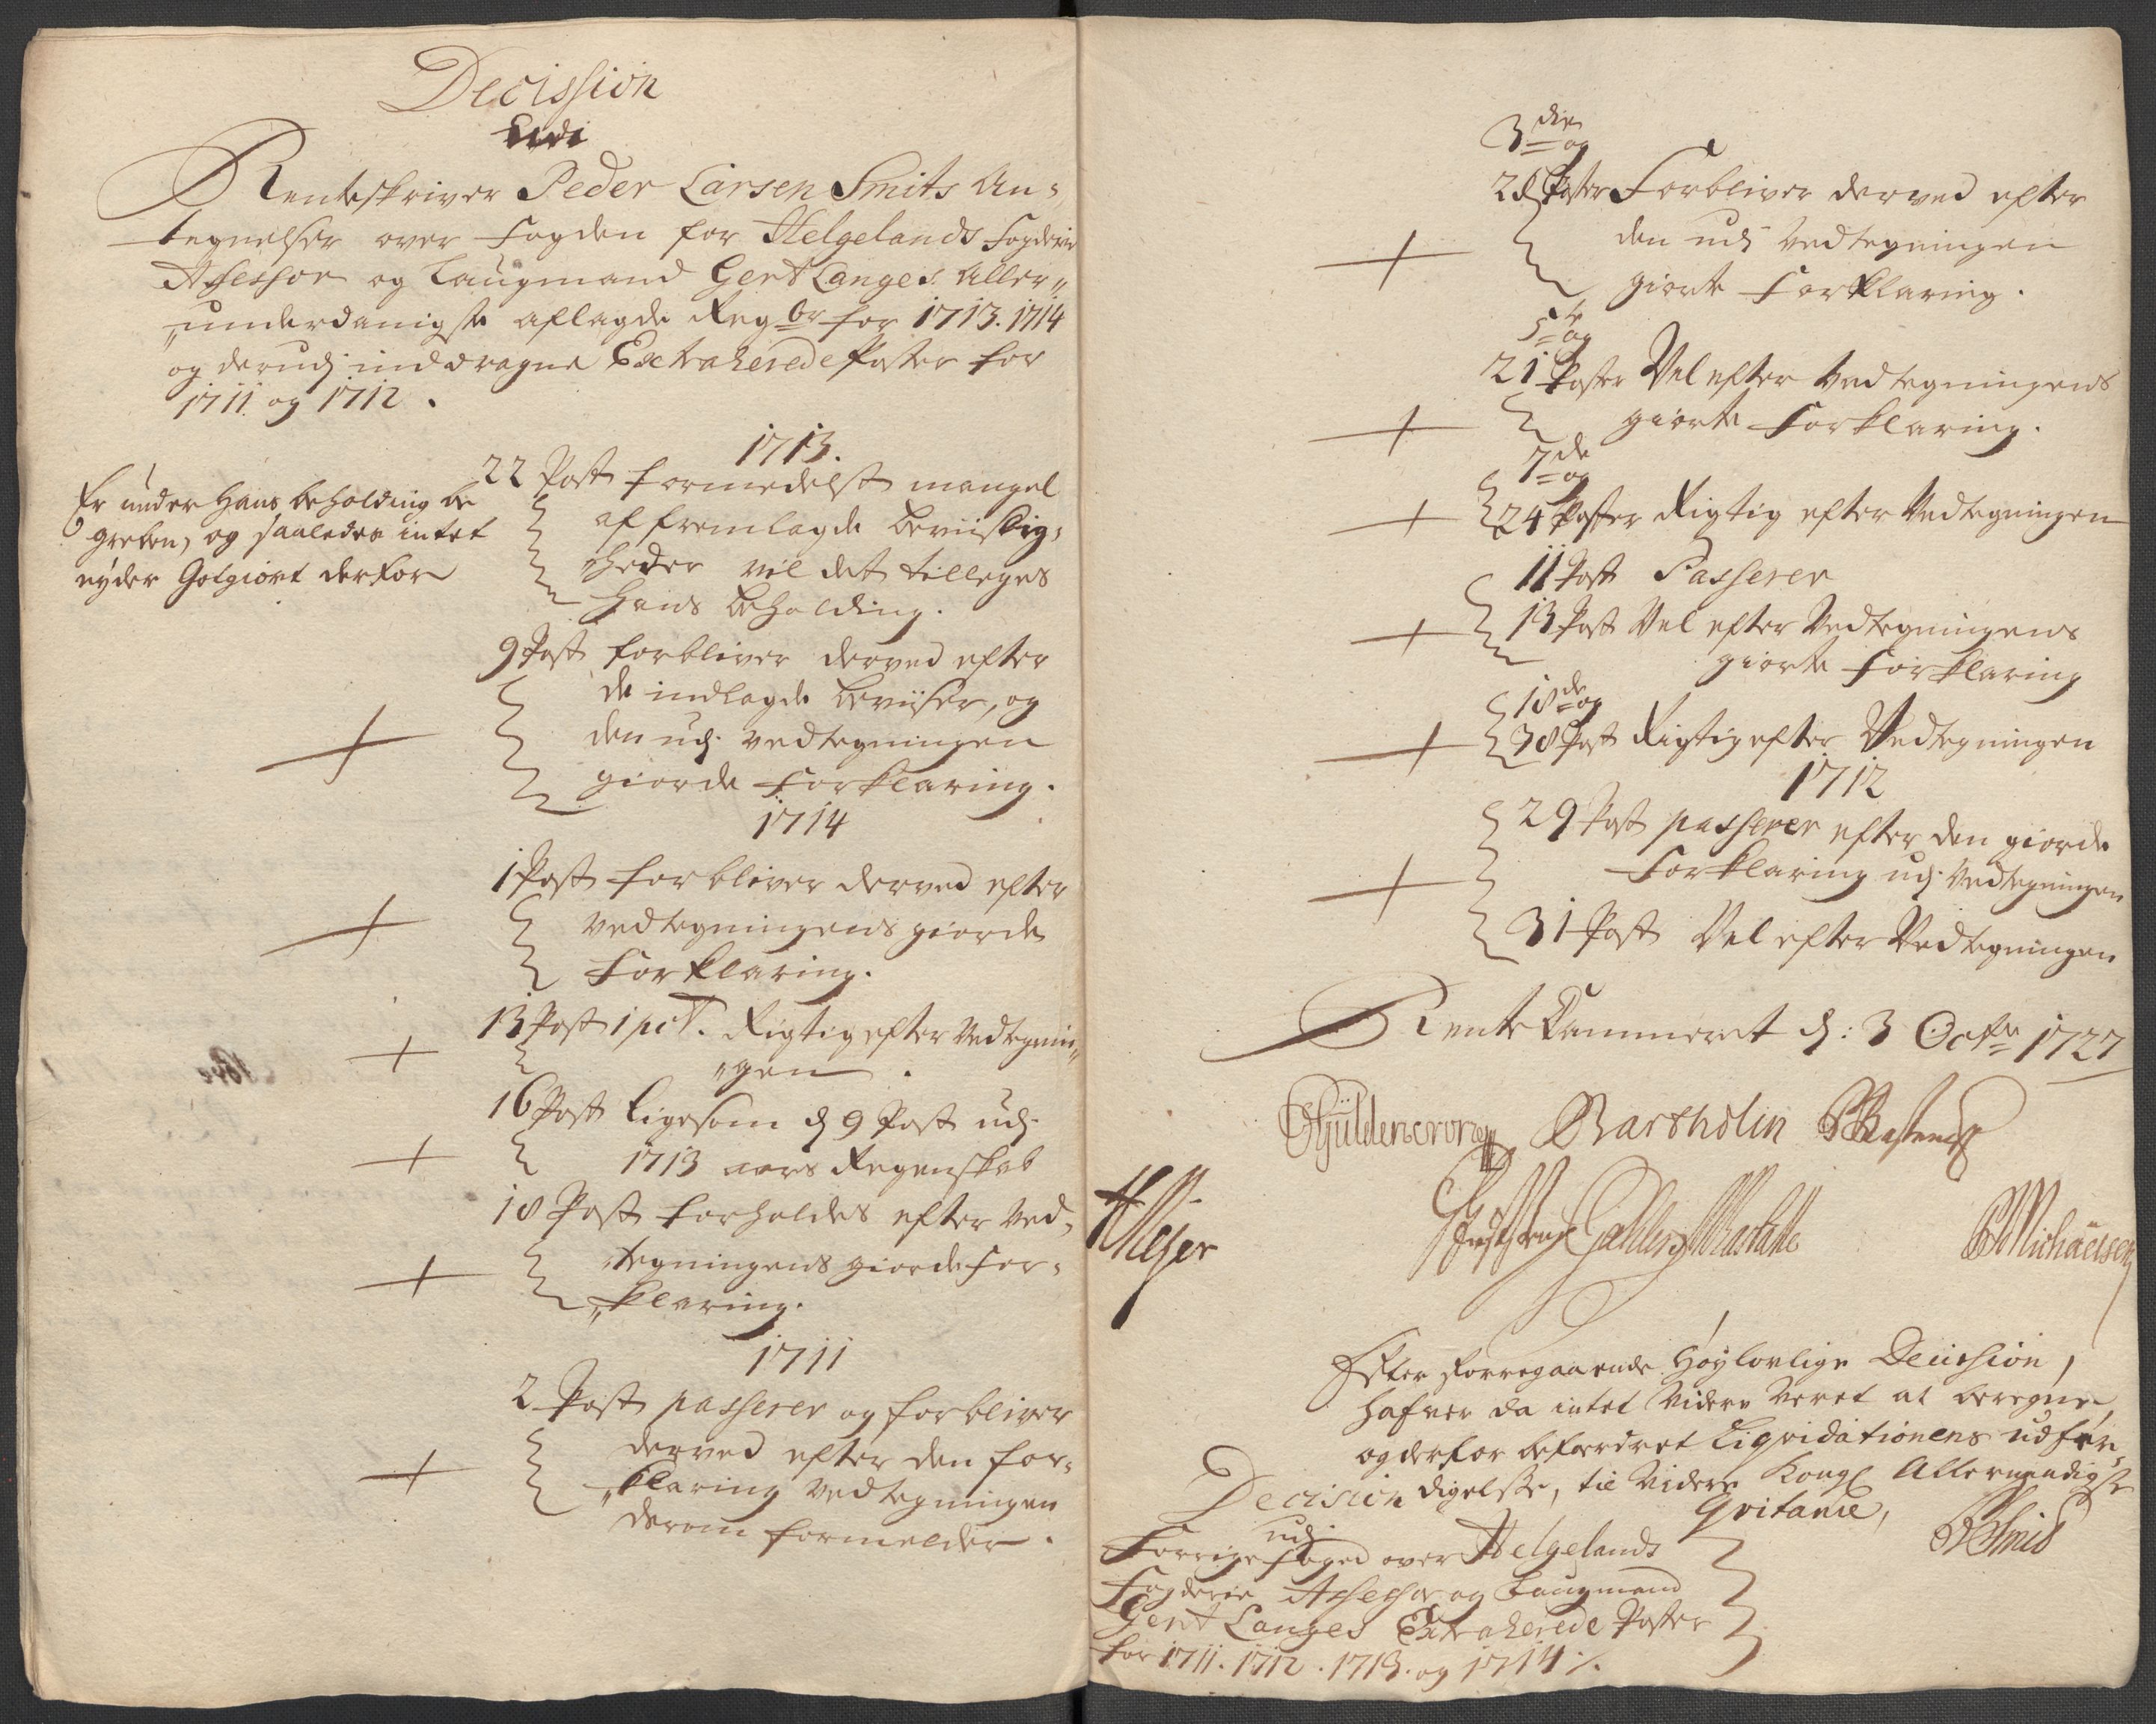 Decission
udi
Renteskriver Peder Larsen Smits An-
tegnelser over Fogden for Helgelands Fogderie
Assessor og Laugmand Gert Langes Aller„
„underdanigste aflagde Regbr for 1713. 1714
og derudj inddragne Extraherede Poster for
1711 og 1712.
1713.
22 Post formedelst mangel
af fremlagde beviislig-
„heder vil det tillegges
hans beholding.
Er under Hans beholding be
greben, og saaledes intet
eyder Gotgiort derfor
9 Post forbliver derved efter
de indlagde beviiser, og
den udj vedtegningen
giorde Forklaring.
1714
1 Post forbliver derved efter
vedtegningens giorde
Forklaring.
13 Post 1 pct. Rigtig efter Vedtegnin„
„gen.
16 Post Ligesom d 9 Post udj
1713 aars Regenskab
18 Post forholdes efter Ved-
tegningens giorde For-
„klaring.
1711
2 Post passerer og forbliver
derved efter den for-
„klaring Vedtegningen
derom formelder.
3die og
28 Poster Forbliver derved efter
den udj Vedtegningen
giorte Forklaring.
5te og
21 Poster Vel efter Vedtegningens
giorte Forklaring.
7de og
24 Poster Rigtig efter Vedtegningen
11 Post Passerer
13 Post Vel efter Vedtegningens
giorte Forklaring
18de og
38 Post Rigtig efter Vedtegningen
1712
29 Post passerer efter den giorde
Forklaring udj Vedtegningen
31 Post Vel efter Vedtegningen
Rente Cammeret d: 3 Octbr 1727
Gyldencrone Bartholin
Meyer CMichaelsen
Efter forregaaende Høylovlige Decission,
hafver da intet videre veret at beregne,
og derfor befordret Liqvidationens udfær„
digelse, til videre Kongl Allernaadigste
Qvitance,
PLSmid
Decision
udj
Forrige foged over Helgelands
Fogderie Assessor og Laugmand
Gert Langes Extraherede Poster
for 1711. 1712. 1713. og 1714 ./.